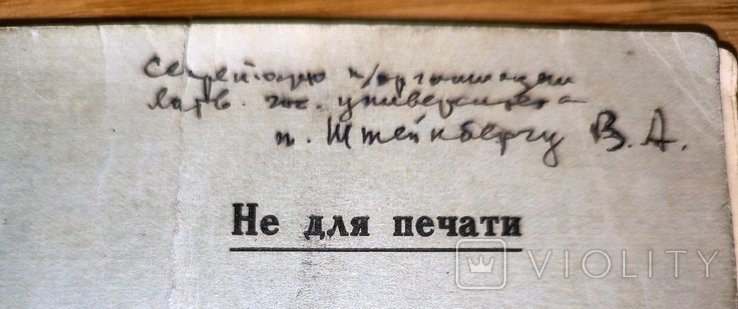 Секретарю п/организации
Латв. гос. университета
т. Штейнбергу В. А.
Не для печати
VIOLITY